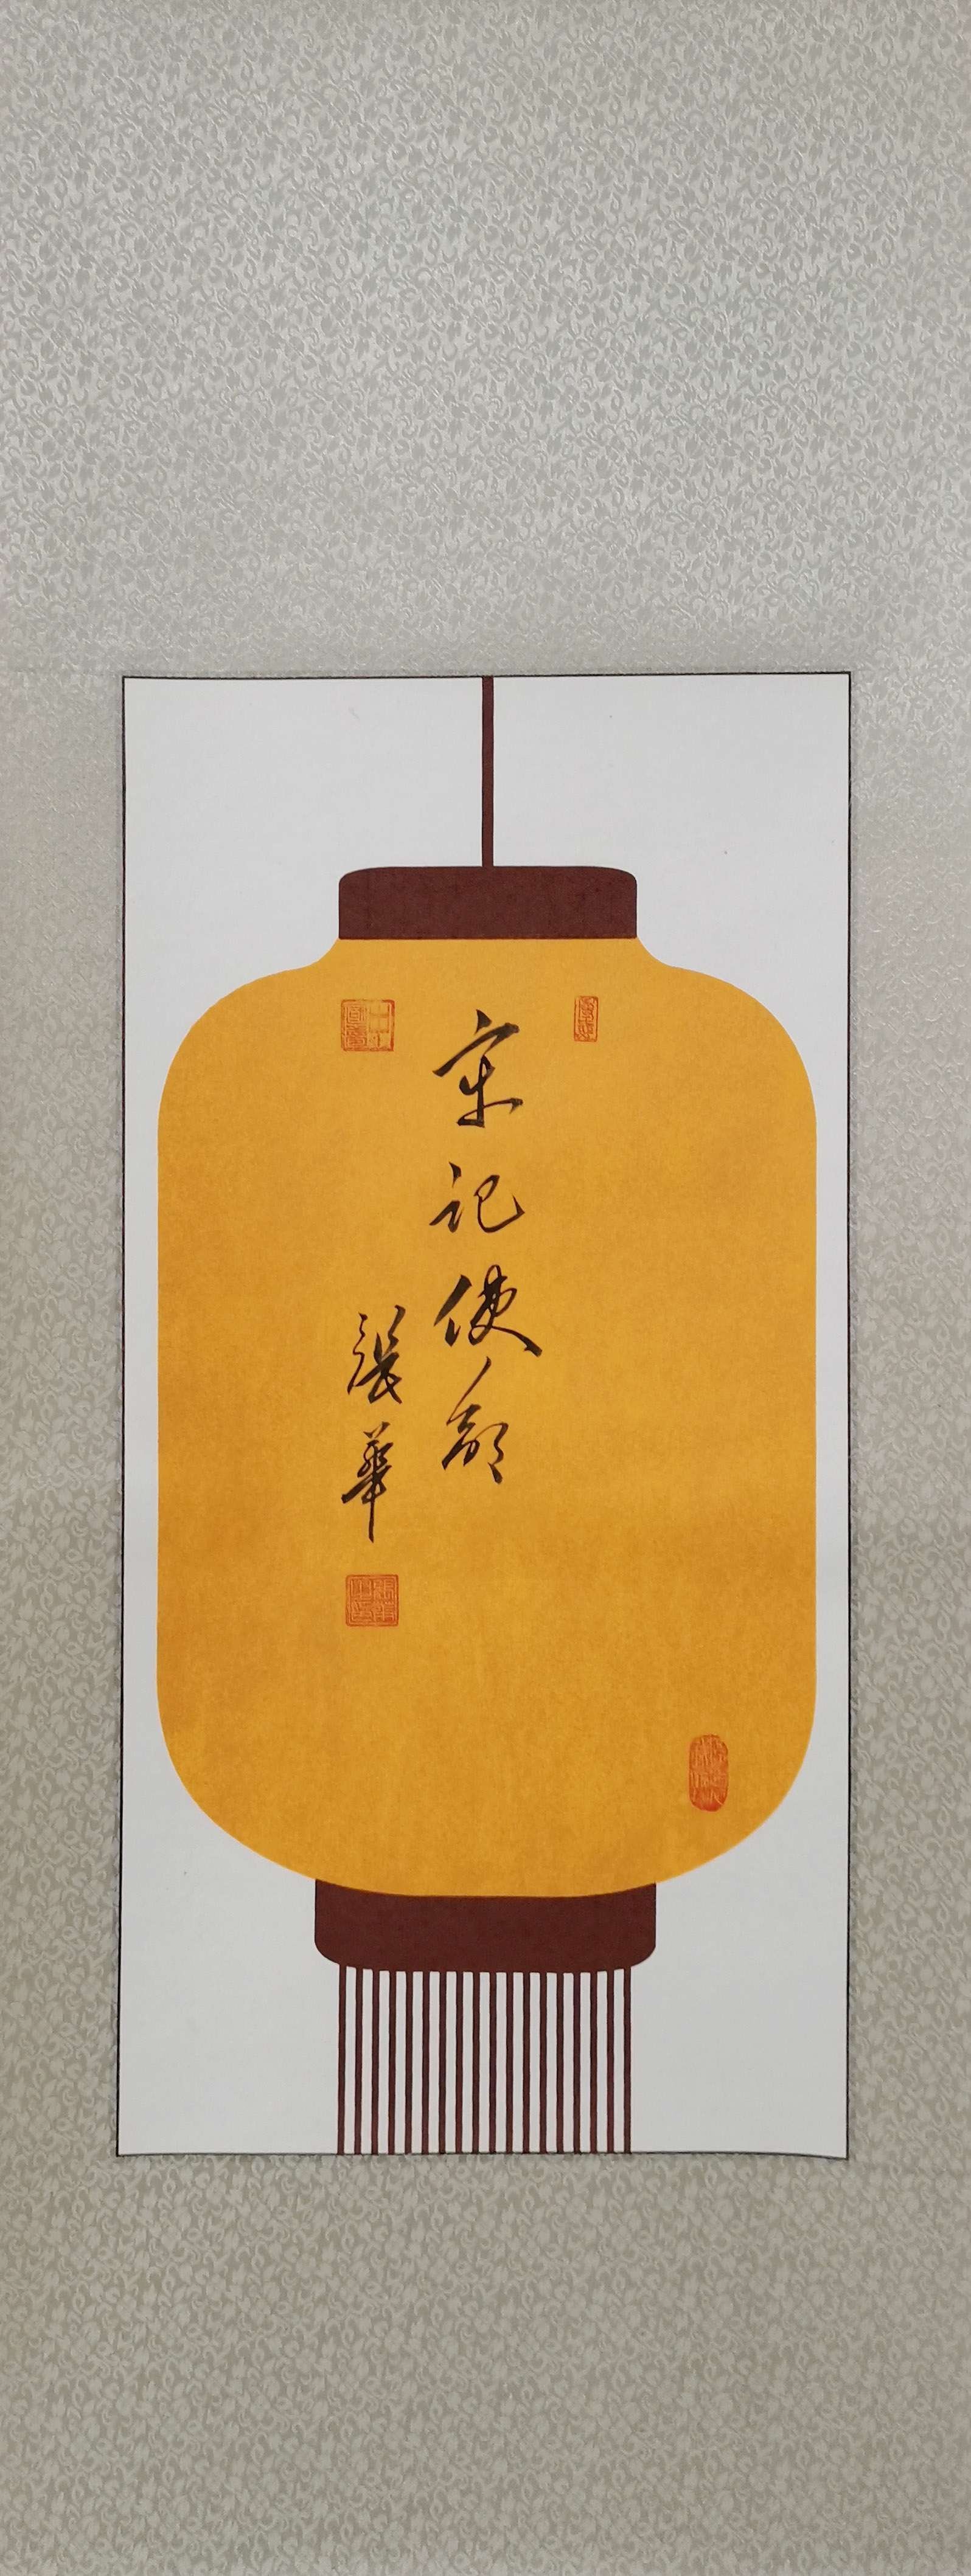 牢记使命
張華